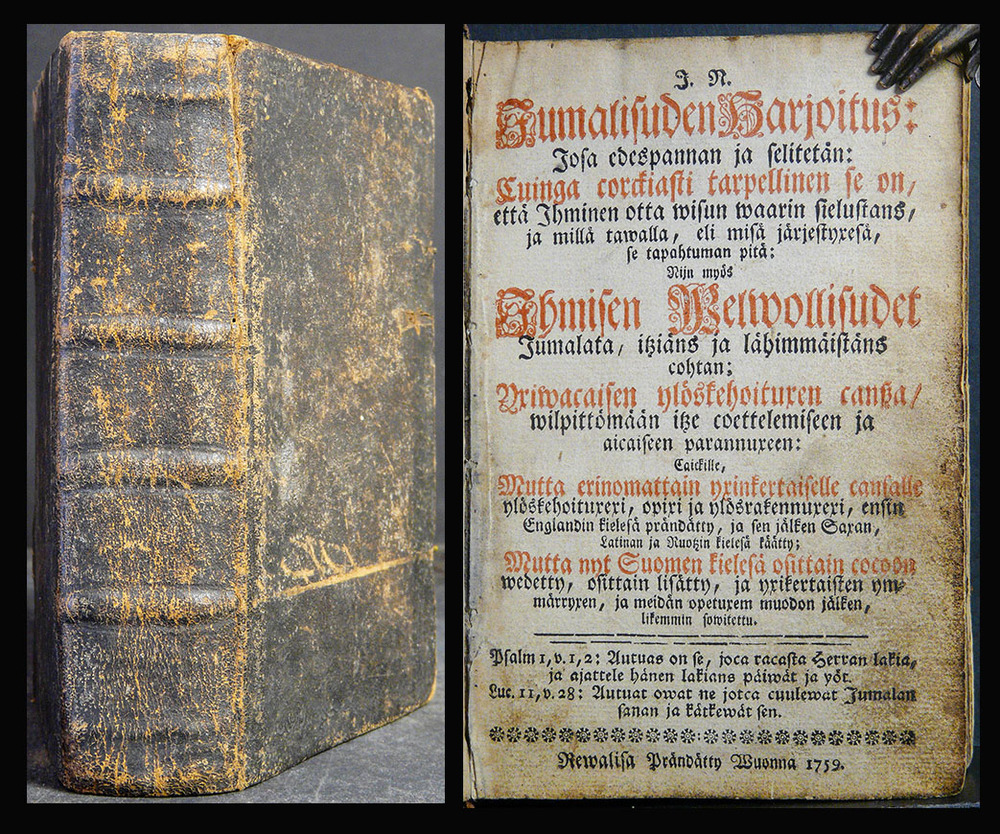 J. N.
Jumalisuden Harjoitus:
Josa edespannan ja selitetän:
Cuinga corckiasti tarpellinen se on,
että Ihminen otta wisun waarin sielustans,
ja millä tawalla, eli misä järjestyxesä,
se tapahtuman pitä:
Nijn myös
Ihmisen Welwollisudet
Jumalata, itziäns ja lähimmäistäns
cohtan;
Yxiwacaisen ylöskehoituxen canßa,
wilpittömään itze coettelemiseen ja
aicaiseen parannuxeen:
Caickille,
Mutta erinomattain yxinkertaiselle canßalle
ylöskehoituxexi, opixi ja ylösrakennuxexi, ensin
Englandin kielesä prändätty, ja sen jälken Saxan,
Latinan ja Ruotzin kielesä käätty;
Mutta nyt Suomen kielesä osittain cocoon
wedetty, osittain lisätty, ja yxikertaisten ym-
märryxen, ja meidän opetuxem muodon jälken,
likemmin sowitettu.
Psalm 1, v. 1, 2: Autuas on se, joca racasta Herran lakia,
ja ajattele hänen lakians päiwät ja yöt.
Luc. 11, v. 28: Autuat owat ne jotca cuulewat Jumalan
sanan ja kätkewät sen.
Rewalisa Prändätty Wuonna 1759.